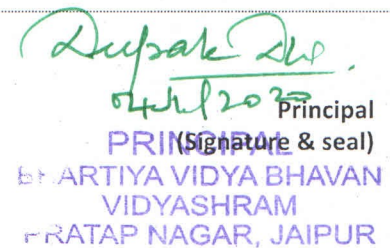 Deepak
Principal
(Signature & seal)
PRINCIPAL
BHARTIYA VIDYA BHAVAN
VIDYASHRAM
PRATAP NAGAR, JAIPUR